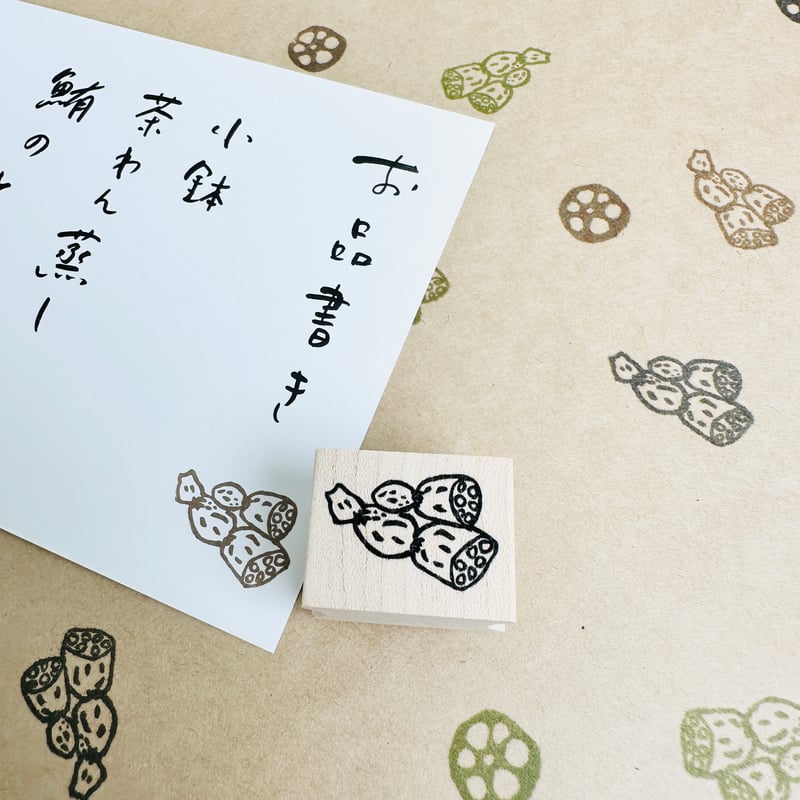 お品書き
小鉢
茶わん蒸し
鮪の